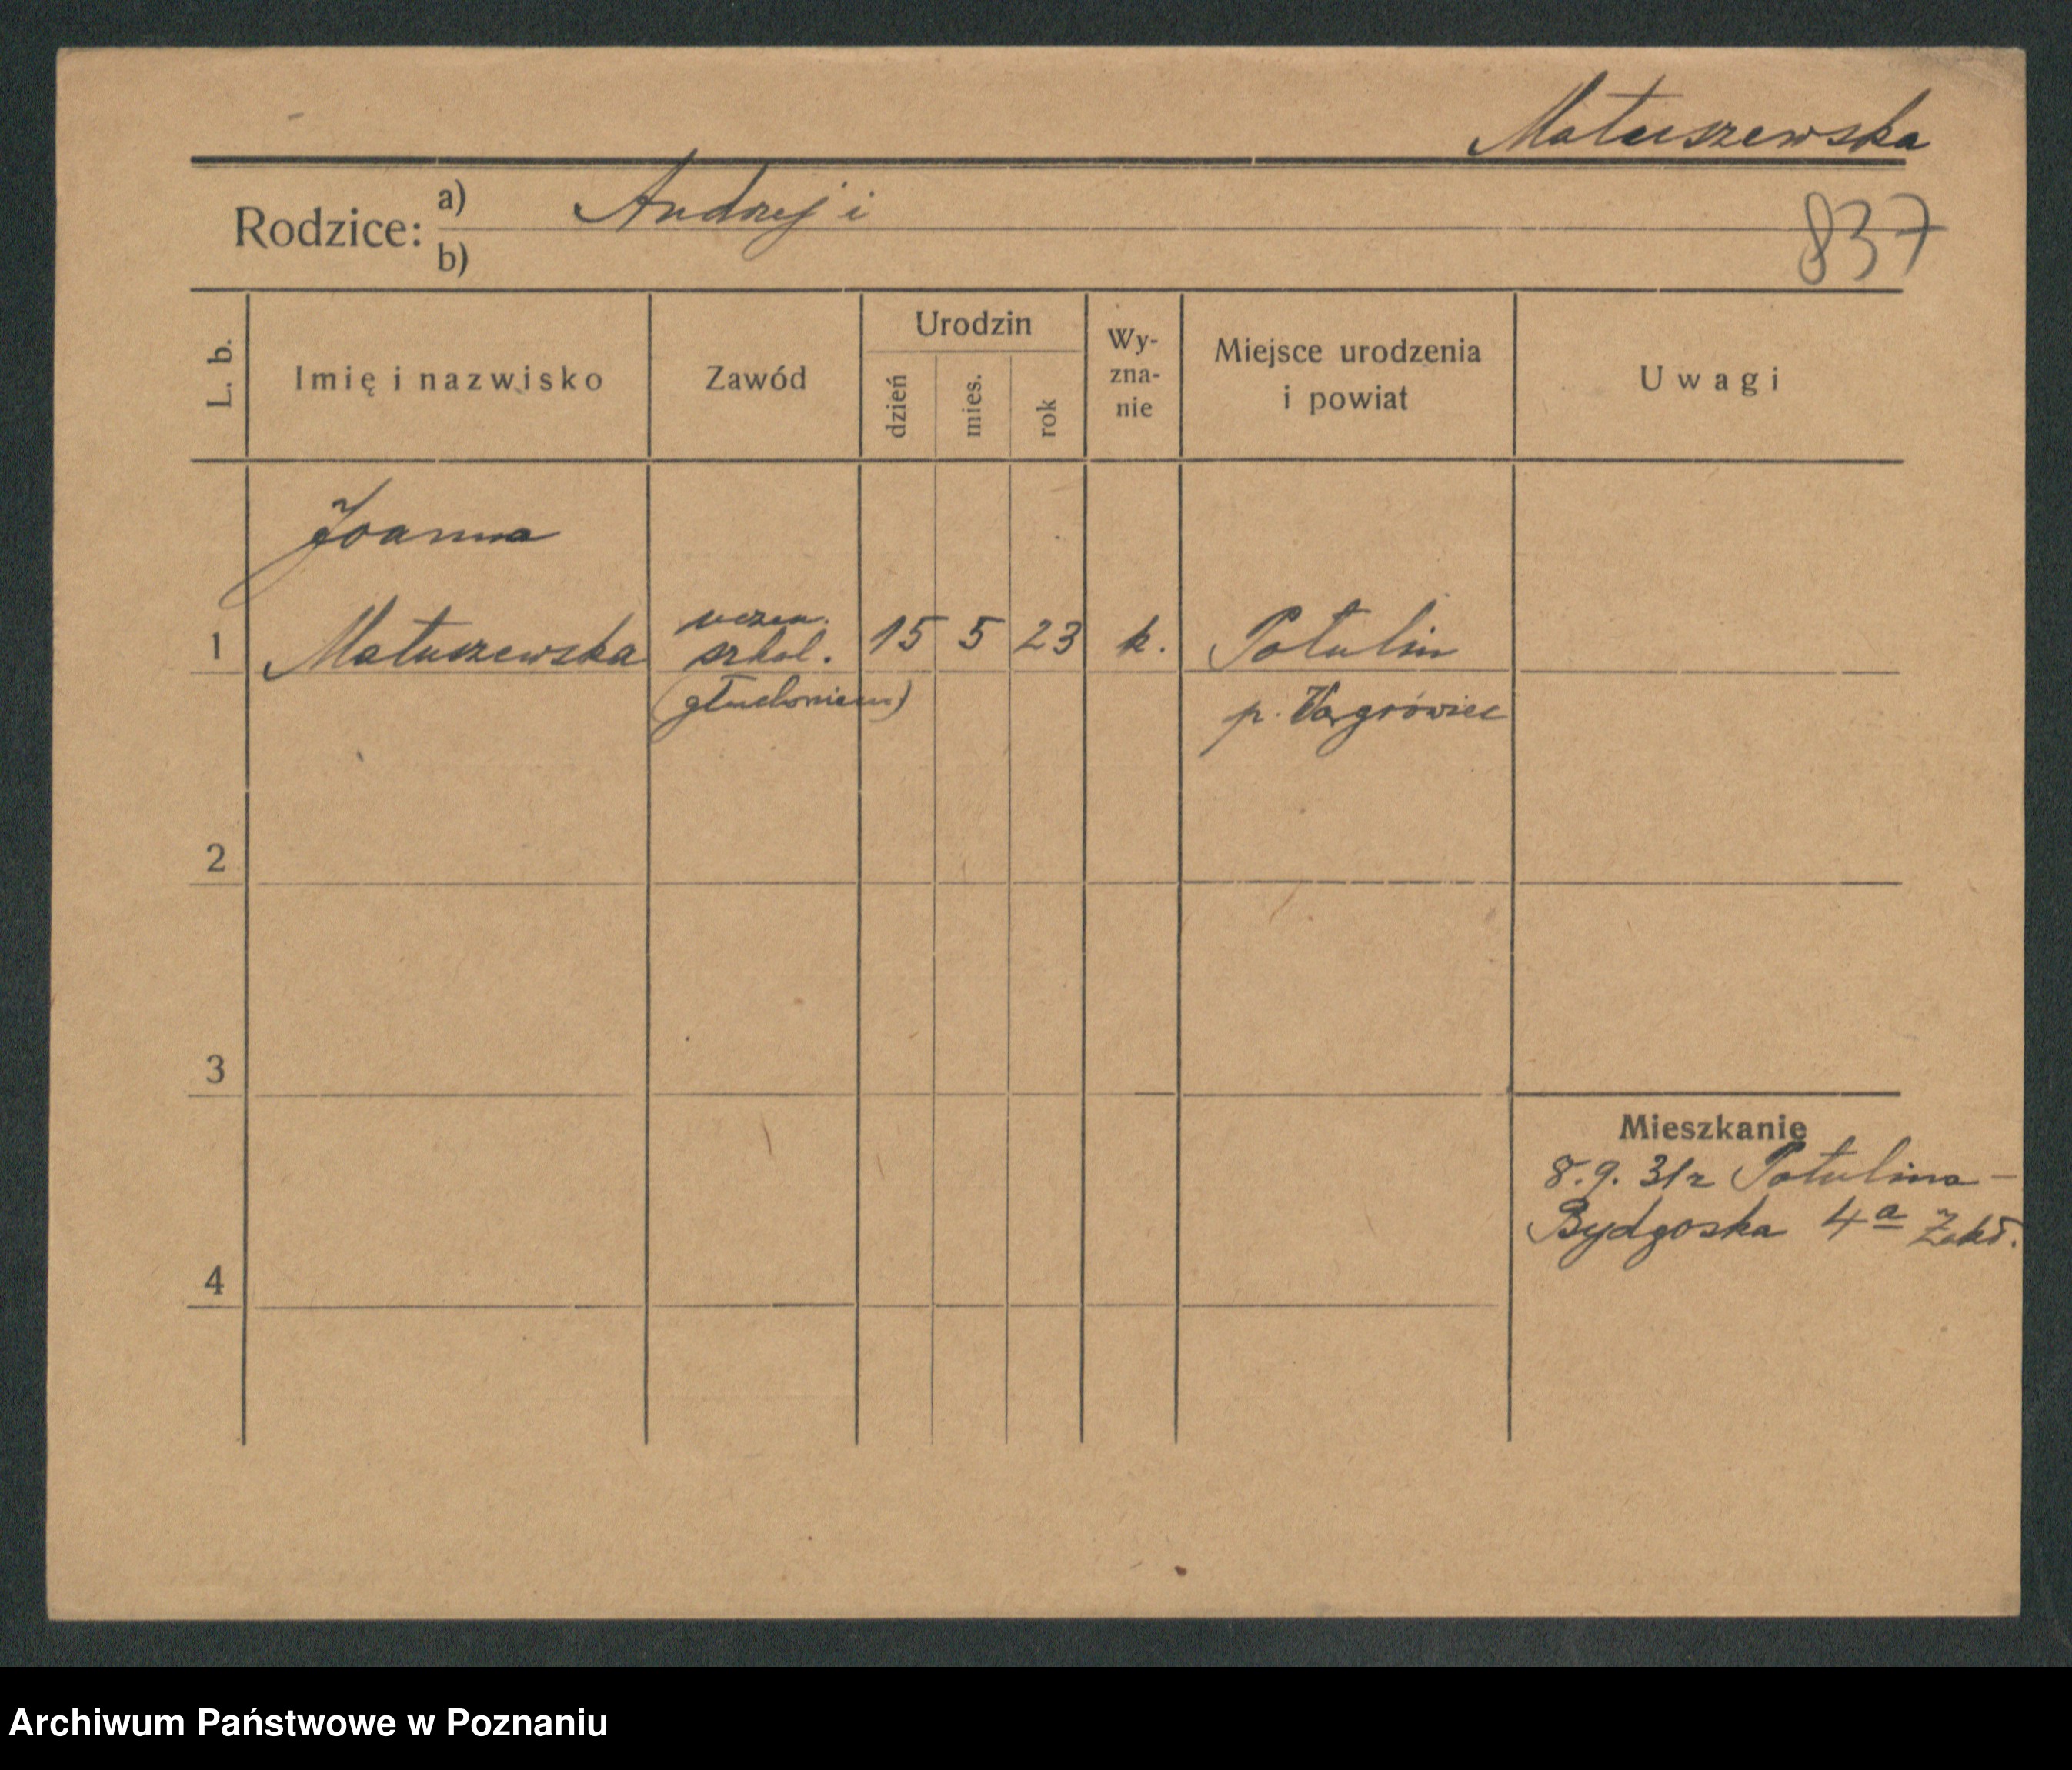 Matuszewska
Rodzice: a) Andrzej i
b)
837
L. b. Imię i nazwisko Zawód Urodzin dzień mies. rok Wy-zna-nie Miejsce urodzenia i powiat Uwagi
Joanna
1 Matuszewska uczen. szkol. 15 5 23 k. Potulin
(głuchoniem) p. Wągrówiec
2
3
Mieszkanie
8.9.31r Potulina –
Bydgoska 4a Zakł.
4
Archiwum Państwowe w Poznaniu